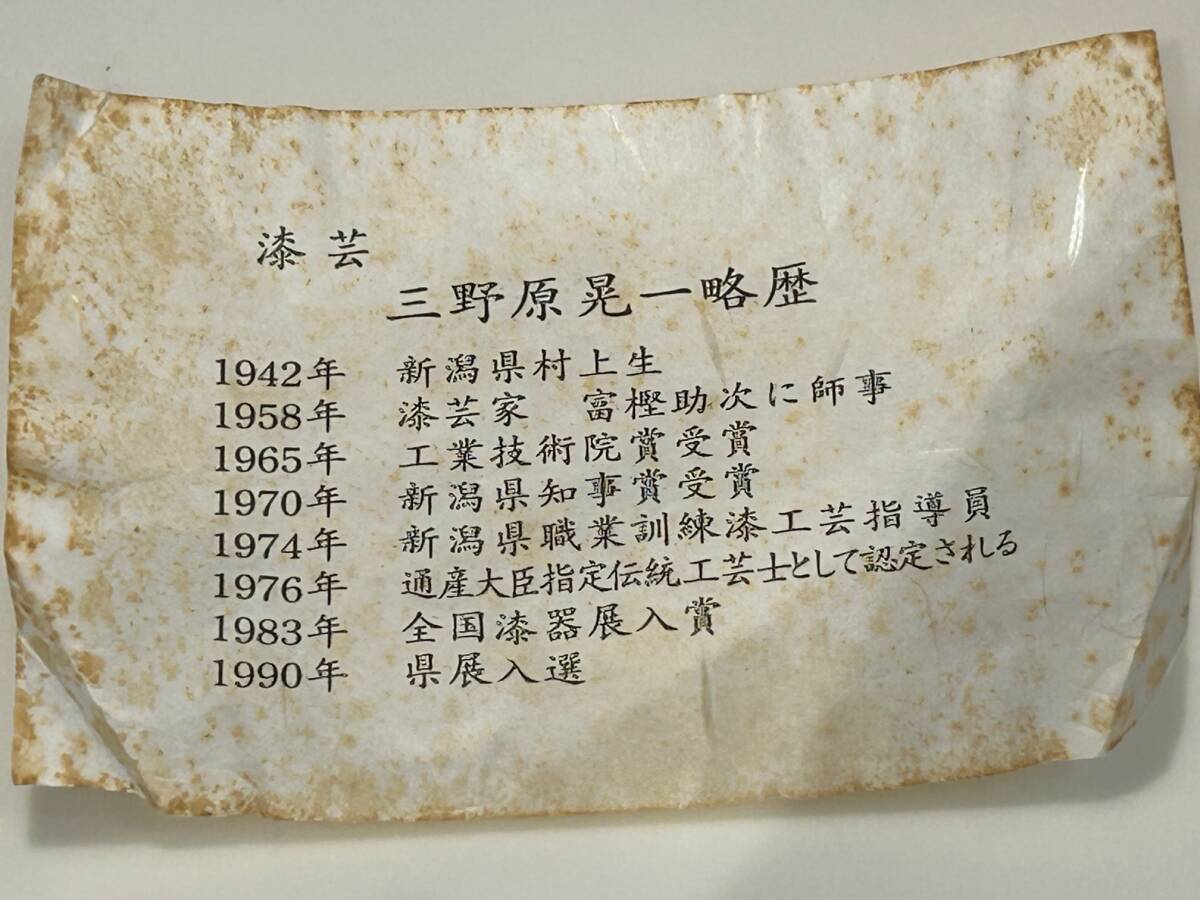 漆芸
三野原晃一略歴
1942年 新潟県村上生
1958年 漆芸家 富樫助次に師事
1965年 工業技術院賞受賞
1970年 新潟県知事賞受賞
1974年 新潟県職業訓練漆工芸指導員
1976年 通産大臣指定伝統工芸士として認定される
1983年 全国漆器展入賞
1990年 県展入選